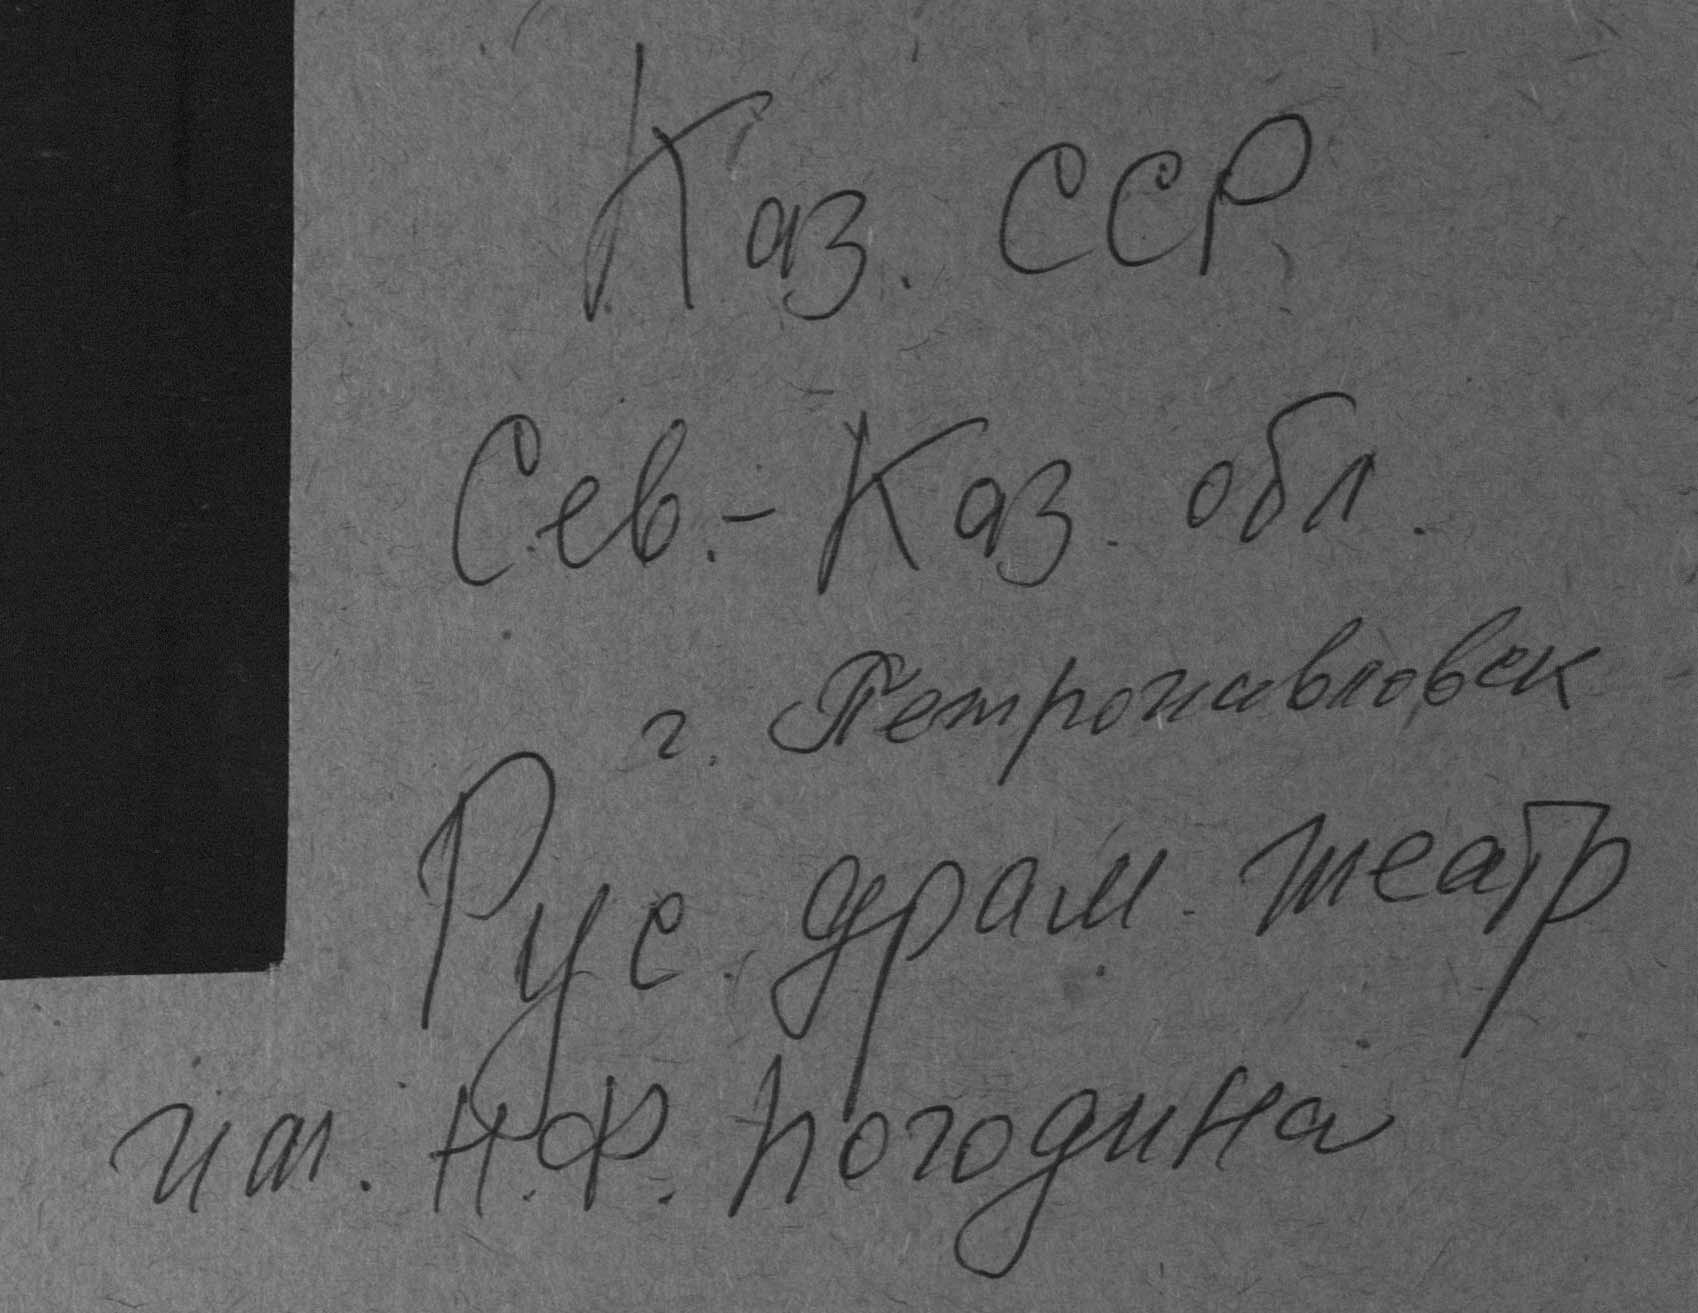 Каз. ССР
Сев.-Каз. обл.
г. Петропавловск
Рус. драм. театр
им. Н.Ф. Погодина